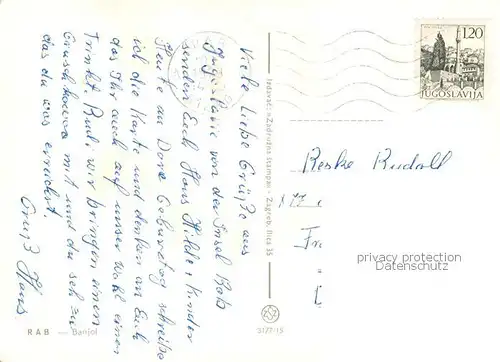 Viele Liebe Grüße aus
Jugoslavie von der Insel Rab
senden Euch Hans Hilde + Kinder
Heute an Doris Geburtstag schreibe
ich die Karte und denken an Euch
das Ihr auch auf unser Wohl einen
Trinkt Rudi, wir bringen einen
mit und du seh zu
das du was
Gruß Hans
RAB — Banjol
Izdavač: »Zadružna štampa« - Zagreb, Ilica 35
2177-15
1.20
JUGOSLAVIJA
Reske Rudolf
Fr
privacy protection
Datenschutz